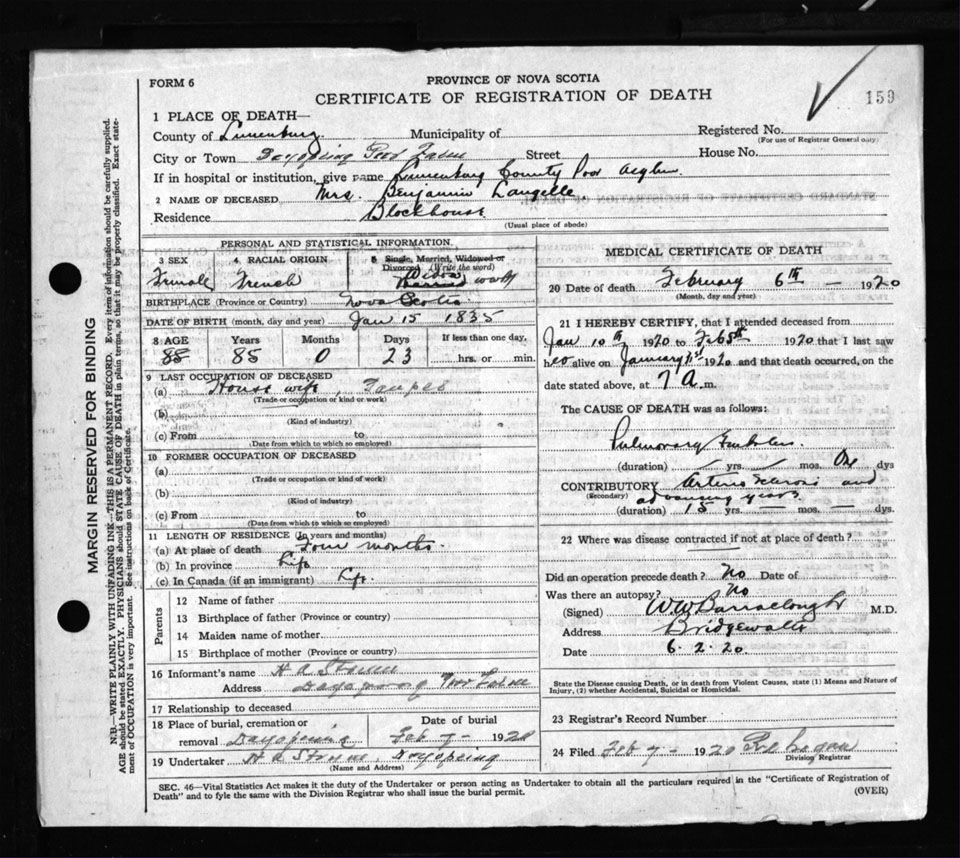 FORM 6
PROVINCE OF NOVA SCOTIA
CERTIFICATE OF REGISTRATION OF DEATH
159
1 PLACE OF DEATH—
County of Lunenburg Municipality of
Registered No.
(For use of Registrar General only)
City or Town Poor Street House No.
If in hospital or institution, give name Lunenburg County Poor
2 NAME OF DECEASED Mrs. Benjamin Langelle
Residence Blockhouse
(Usual place of abode)
PERSONAL AND STATISTICAL INFORMATION.
3 SEX
Female
4 RACIAL ORIGIN
French
5 Single, Married, Widowed or Divorced (Write the word)
BIRTHPLACE (Province or Country) Nova Scotia
DATE OF BIRTH (month, day and year) Jan 15 1835
8 AGE Years Months Days If less than one day,
88 85 0 23 hrs. or min.
9 LAST OCCUPATION OF DECEASED
(a) House wife,
(Trade or occupation or kind or work)
(b)
(Kind of industry)
(c) From to
(Date from which to which so employed)
10 FORMER OCCUPATION OF DECEASED
(a)
(Trade or occupation or kind of work)
(b)
(Kind of industry)
(c) From to
(Date from which to which so employed)
11 LENGTH OF RESIDENCE (In years and months)
(a) At place of death Four months.
(b) In province Life
(c) In Canada (if an immigrant) Life
Parents
12 Name of father
13 Birthplace of father (Province or country)
14 Maiden name of mother
15 Birthplace of mother (Province or country)
16 Informant's name H A
Address Poor
17 Relationship to deceased
18 Place of burial, cremation or removal
Date of burial
Feb 7 - 1920
19 Undertaker H A
(Name and Address)
MEDICAL CERTIFICATE OF DEATH
20 Date of death February 6th — 1920
(Month, day and year)
21 I HEREBY CERTIFY, that I attended deceased from
Jan 10th 1920 to Feb 5th 1920 that I last saw
her alive on January 1920 and that death occurred, on the
date stated above, at 7 a. m.
The CAUSE OF DEATH was as follows:
Pulmonary
(duration) yrs. mos. One dys
CONTRIBUTORY and
(Secondary) advancing years
(duration) 15 yrs. — mos. — dys.
22 Where was disease contracted if not at place of death?
Did an operation precede death? No Date of
Was there an autopsy? No
(Signed) W W Barraclough M.D.
Address
Date 6. 2. 20.
State the Disease causing Death, or in death from Violent Causes, state (1) Means and Nature of
Injury, (2) whether Accidental, Suicidal or Homicidal.
23 Registrar's Record Number
24 Filed Feb 7 - 1920
Division Registrar
SEC. 46—Vital Statistics Act makes it the duty of the Undertaker or person acting as Undertaker to obtain all the particulars required in the "Certificate of Registration of
Death" and to fyle the same with the Division Registrar who shall issue the burial permit.
(OVER)
MARGIN RESERVED FOR BINDING
N.B.—WRITE PLAINLY WITH UNFADING INK—THIS IS A PERMANENT RECORD. Every item of information should be carefully supplied.
AGE should be stated EXACTLY. PHYSICIANS should STATE CAUSE OF DEATH in plain terms, so that it may be properly classified. Exact state-
ment of OCCUPATION is very important. See instructions on back of Certificate.